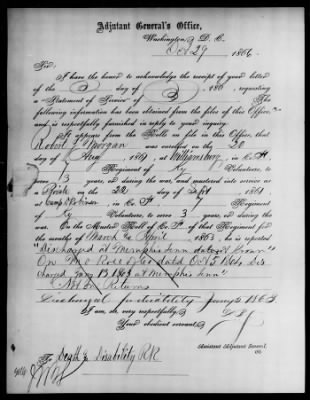 Adjutant General's Office,
Washington, D. C.
Oct 29 1866.
Sir:
I have the honor to acknowledge the receipt of your letter
of the 3 day of 3, 186 , requesting
a "Statement of Service" of 3 The
following information has been obtained from the files of this Office,
and is respectfully furnished in reply to your inquiry.
It appears from the Rolls on file in this Office, that
Robert Morgan was enrolled on the 20
day of Aug, 1861, at Williamsburg, in Co. H
7 Regiment of Ky Volunteers, to
serve 3 years, or during the war, and mustered into service as
a Private on the 22 day of Sept, 1861
at Camp Robinson, in Co. H 7 Regiment
of Ky Volunteers, to serve 3 years, or during
the war. On the Muster Roll of Co. H of that Regiment for
the months of March & April, 1863, he is reported
"Discharged at Memphis Tenn
On M O Roll of Co dated Oct 5 1864 Dis
charged Jan 13 1863 at Memphis Tenn"
Not on Returns
Discharged for disability Jany 13 1863
I am, sir, very respectfully,
Your obedient servant,
Assistant Adjutant General.
To Death & Disability RR